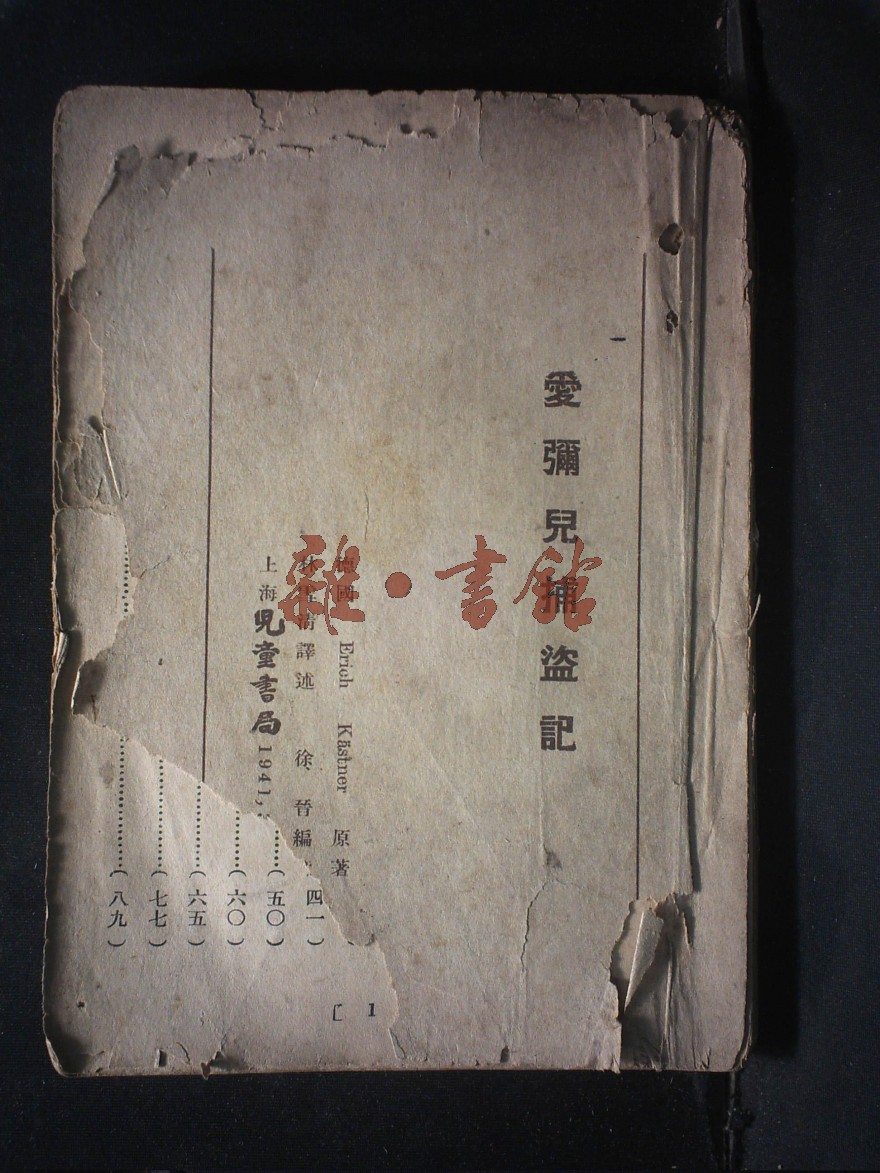 愛彌兒捕盜記
德國 Erich Kästner 原著
林清譯述 徐晉編
上海兒童書局 1941,
四一)
(五〇)
(六〇)
(六五)
(七七)
(八九)
[ 1
雜·書館